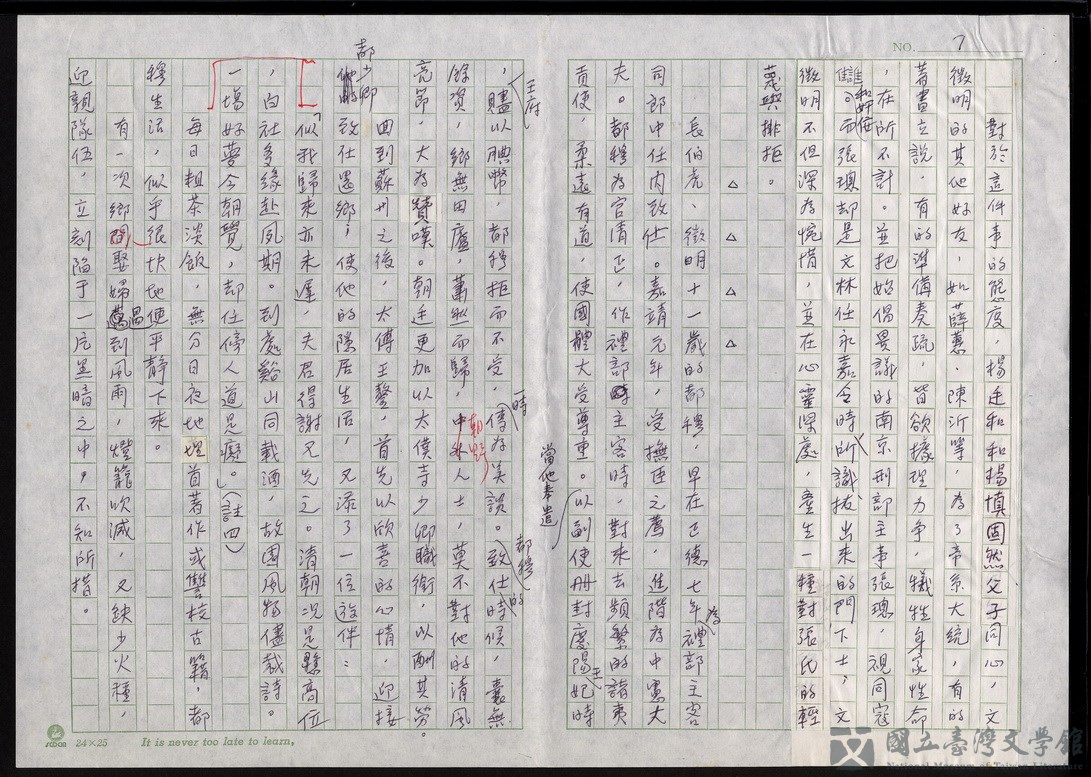 NO. 7
對於這件事的態度，楊廷和和楊慎固然父子同心，文
徵明的其他好友，如薛蕙、陳沂等，為了帝系大統，有的
著書立說，有的準備奏疏，皆欲據理力爭，犧牲身家性命
，在所不計。並把始倡異議的南京刑部主事張璁，視同寇
讎和奸佞。而張璁却是文林任永嘉令時所識拔出來的門下士，文
徵明不但深為惋惜，並在心靈深處，產生一種對張氏的輕
蔑與排拒。
△ △ △ △
長伯虎、徵明十一歲的都穆，早在正德七年，為禮部主客
司郎中任內致仕。嘉靖元年，受撫臣之薦，進階為中憲大
夫。都穆為官清正，作禮部主客時，對來去頻繁的諸夷
貢使，柔遠有道，使國體大受尊重。當他奉遣以副使冊封慶陽王妃時
，王府贐以聘幣，都穆拒而不受，一時傳為美談。都穆致仕的時候，囊無
餘資，鄉無田廬，蕭然而歸，朝野人士，莫不對他的清風
亮節，大為讚嘆。朝廷更加以太僕寺少卿職銜，以酬其勞。
回到蘇州之後，太傅王鏊，首先以欣喜的心情，迎接
都少卿致仕還鄉；使他的隱居生活，又添了一位遊伴：
「似我歸來亦未遲，夫君得謝又先之。清朝況是懸高位
，白社多緣赴夙期。到處谿山同載酒，故園風物儘裁詩。
一場好夢今朝覺，却任傍人道是癡。」（註四）
每日粗茶淡飯，無分日夜地埋首著作或讐校古籍，都
穆生活，似乎很快地便平靜下來。
有一次鄉間娶婦遇到風雨，燈籠吹滅，又缺少火種，
迎親隊伍，立刻陷于一片黑暗之中，不知所措。
24×25
It is never too late to learn.
國立臺灣文學館
National Museum of Taiwan Literature